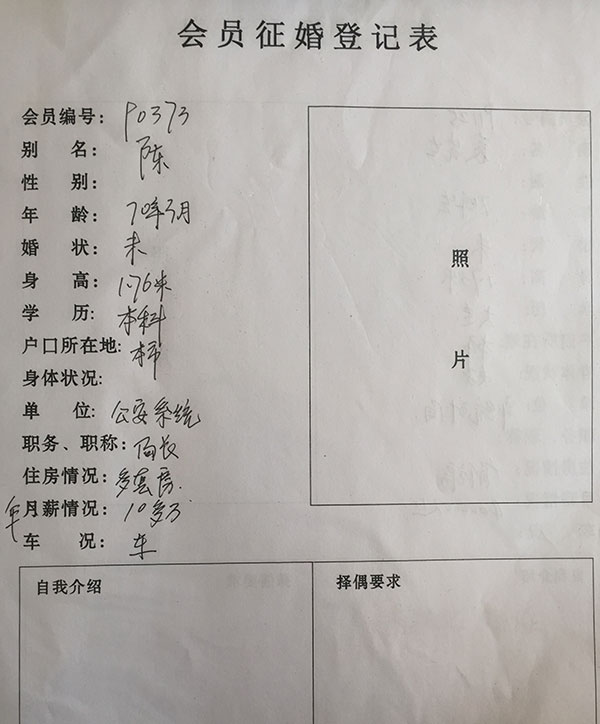 会员征婚登记表
会员编号：P0373
别 名：陈
性 别：
年 龄：70年3月
婚 状：未
身 高：1.76米
学 历：本科
户口所在地：本市
身体状况：
单 位：公安系统
职务、职称：局长
住房情况：多套房.
年月薪情况：10多万
车 况：车
照
片
自我介绍
择偶要求